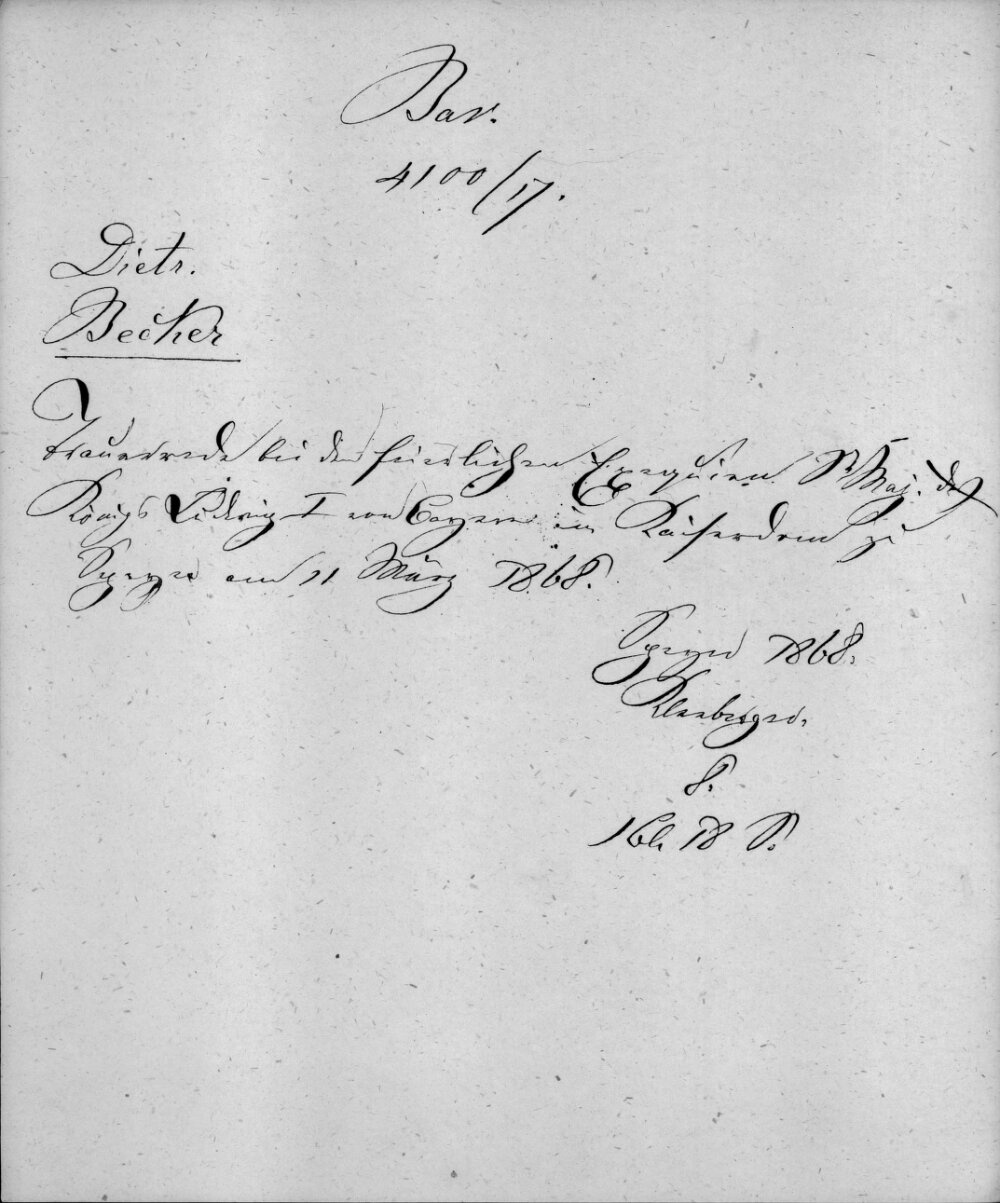 Bav.
4100/17.
Dietr.
Becker
Trauerrede bei den feierlichen Exequien Sr Maj. des
Königs Ludwig I von Bayern im Kaiserdom zu
Speyer am 11 März 1868.
Speyer 1868.
Kleeberger.
8.
1 Bl. 18 S.